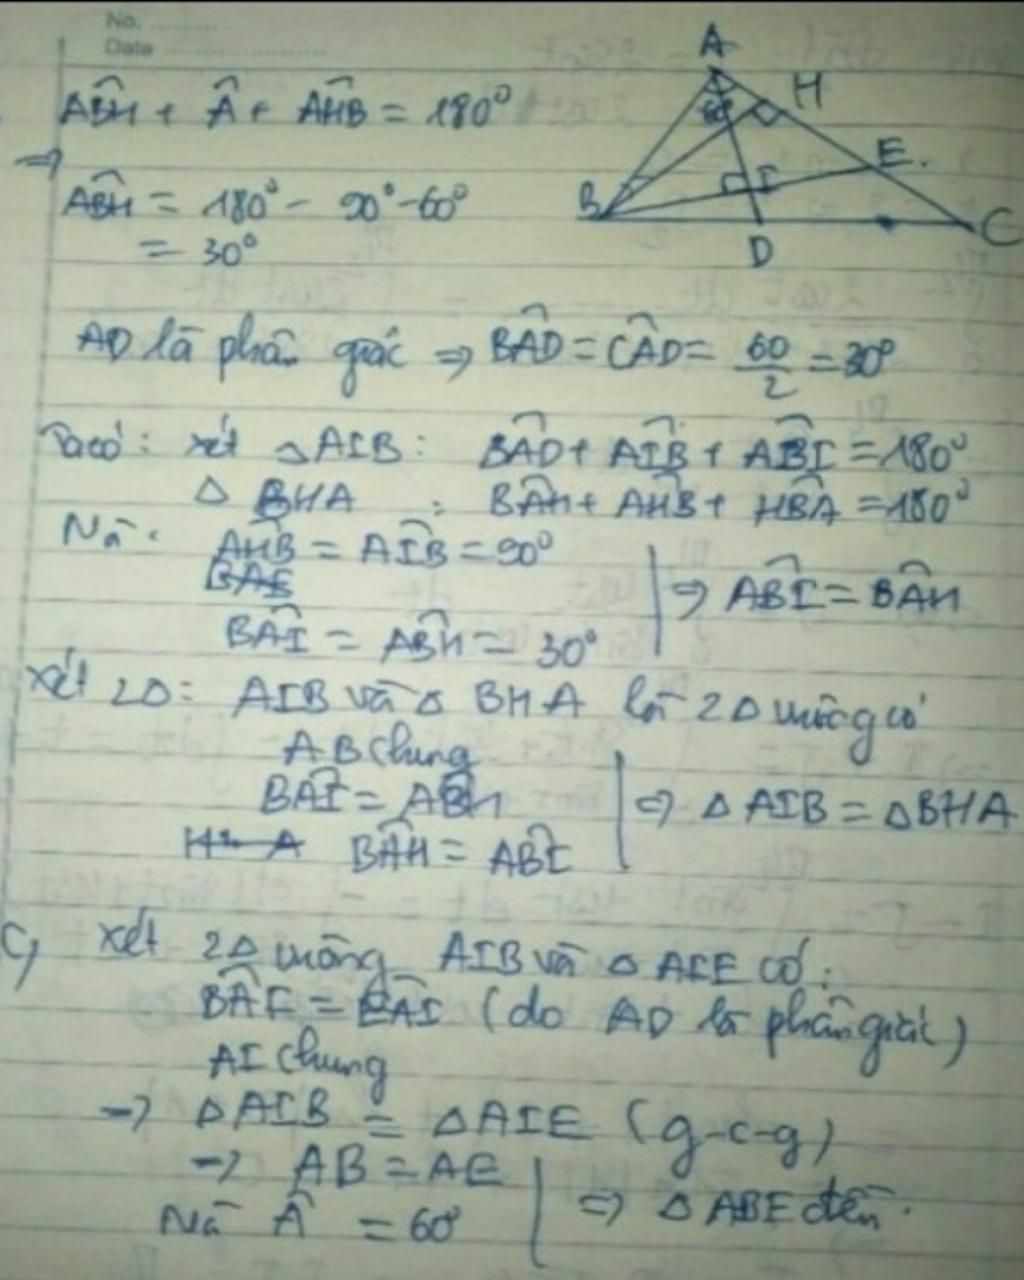 No. ............
Date ........................
A
H
60°
E.
B
I
C
D
ABH + Â + AHB = 180°
=>
ABH = 180° - 90° - 60°
= 30°
AD là phân giác => BAD = CAD = 60/2 = 30°
Ta có: xét △AIB: BAD + AIB + ABI = 180°
△ BHA : BAH + AHB + HBA = 180°
Mà: AHB = AIB = 90°
BAE
BAI = ABH = 30°
=> ABI = BAH
Xét 2△: AIB và △ BHA là 2△ vuông có
AB chung
BAI = ABH
BAH = ABI
=> △ AIB = △BHA
C, xét 2△ vuông AIB và △ AIE có:
BAI = EAI (do AD là phân giác)
AI chung
=> △AIB = △AIE (g-c-g)
=> AB = AE
Mà Â = 60°
=> △ ABE đều.